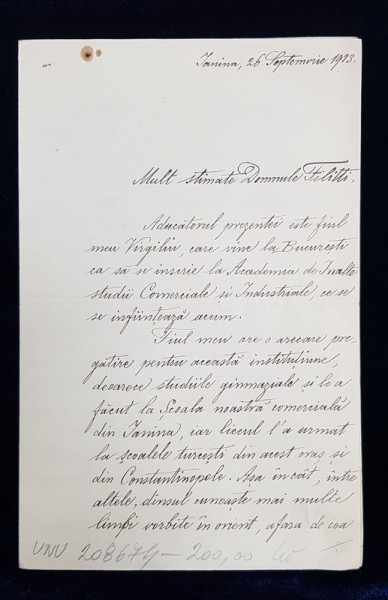 Janina, 26 Septemvrie 1913.
Mult stimate Domnule Filitti,
Aducătorul prezentei este fiul
meu Virgiliu, care vine la București
ca să se inscrie la Academia de Inalte
studii Comerciale și Industriale, ce se
se inființează acum.
Fiul meu are o arecare pre-
gătire pentru această instituțiune,
deoarece studiile gimnaziale și le a
făcut la Școala noastră comercială
din Janina, iar liceul l'a urmat
la școalele turcești din acest oraș și
din Constantinopole. Așa în cât, între
altele, dînsul cunoaște mai multe
limbi vorbite în orient, afara de cea
UNU 208674 – 200,00 lei